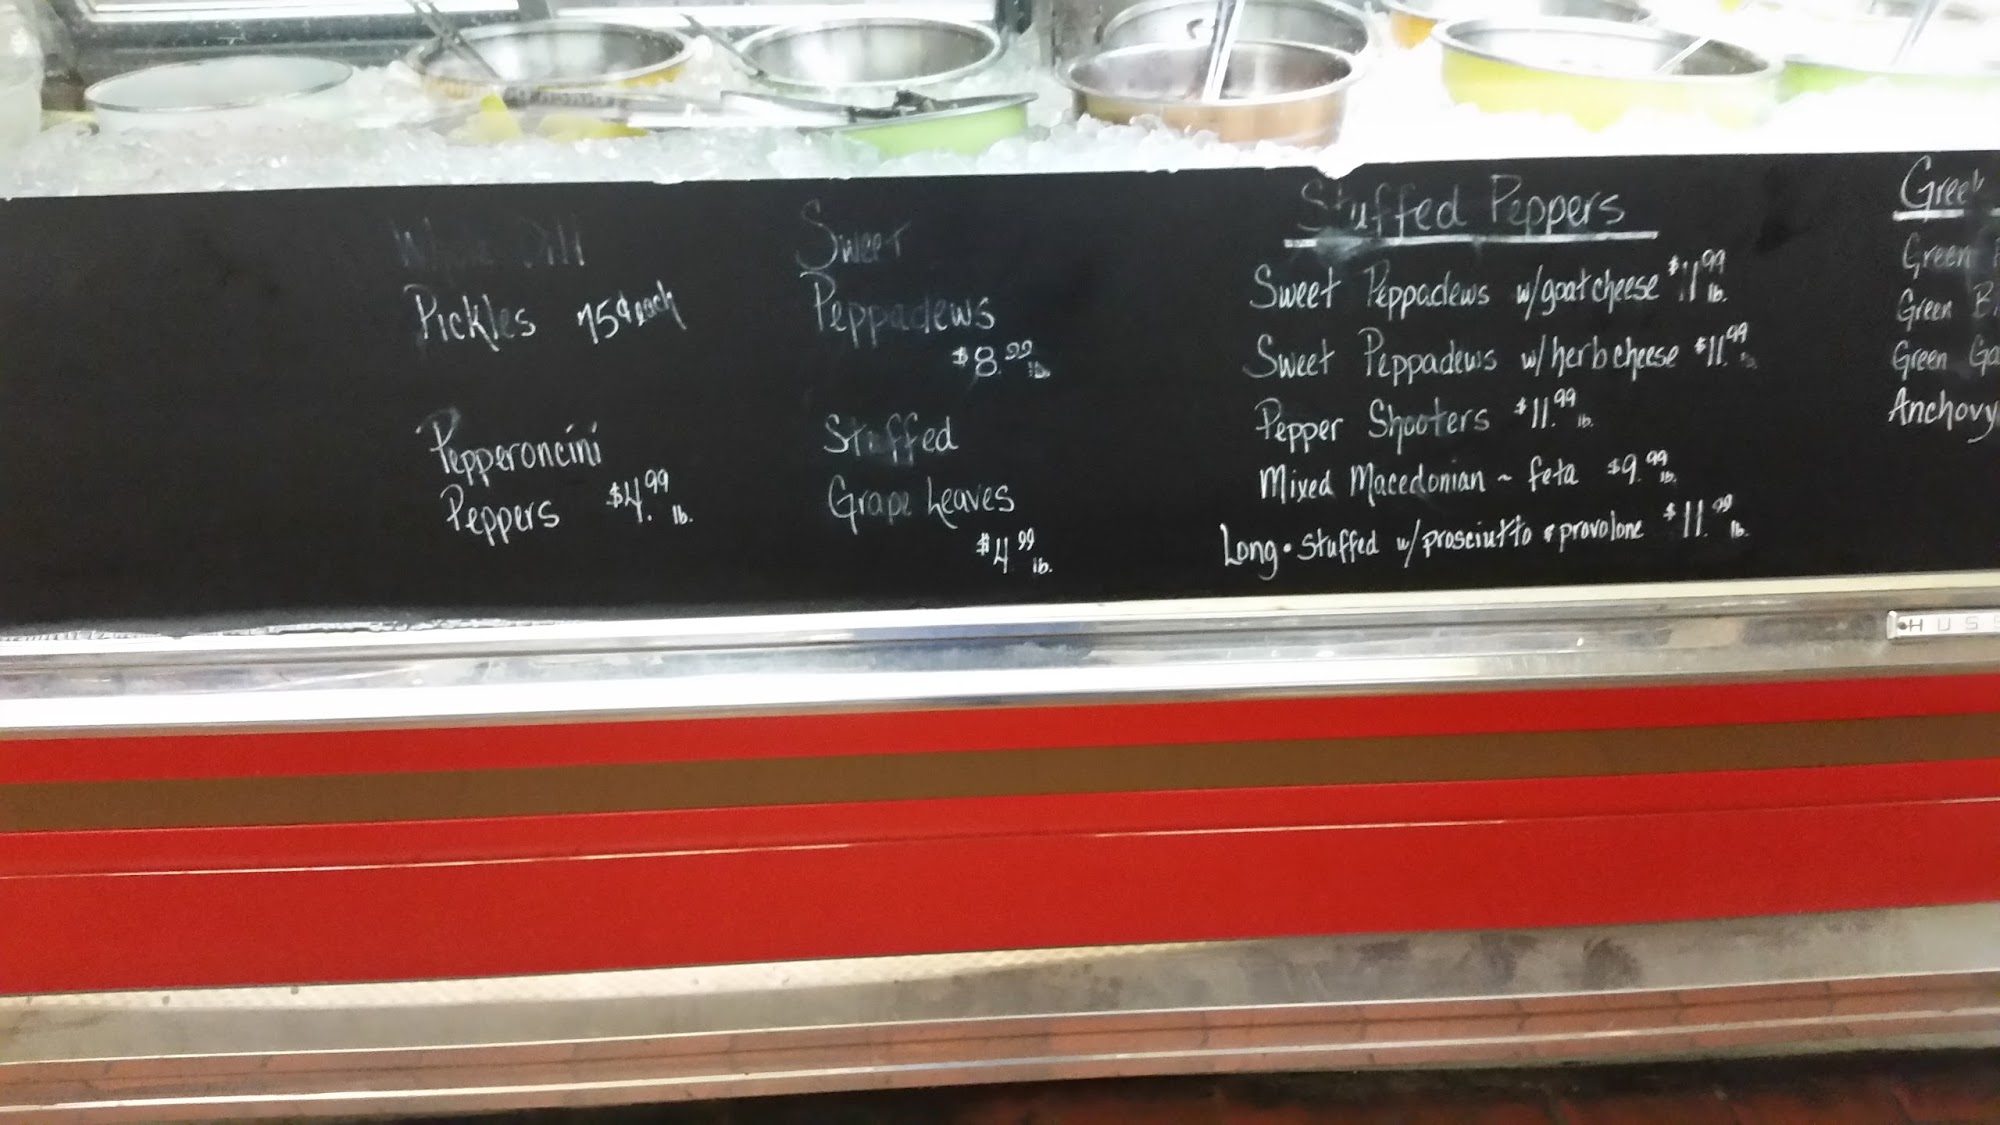 Whole Dill
Pickles 75¢ each
Pepperoncini
Peppers $4.99 lb.
Sweet
Peppadews
$8.99 lb.
Stuffed
Grape Leaves
$4.99 lb.
Stuffed Peppers
Sweet Peppadews w/goat cheese $11.99 lb.
Sweet Peppadews w/herb cheese $11.99 lb.
Pepper Shooters $11.99 lb.
Mixed Macedonian ~ feta $9.99 lb.
Long • Stuffed w/prosciutto & provolone $11.99 lb.
Greek
Green
Green
Green
Anchovy
HUSS